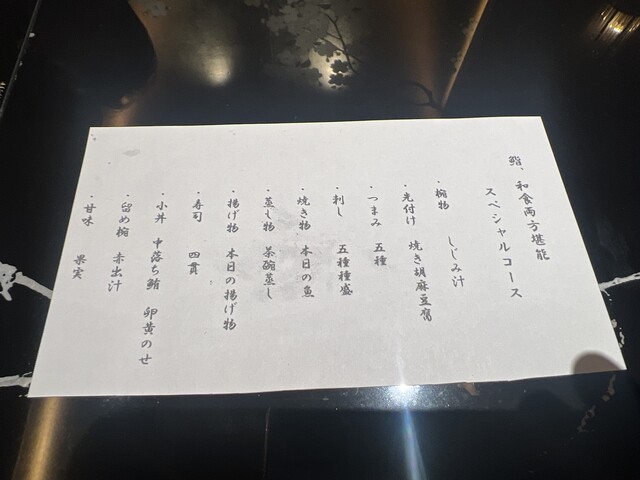 鮨、和食両方堪能
スペシャルコース
・椀物 しじみ汁
・先付け 焼き胡麻豆腐
・つまみ 五種
・刺し 五種種盛
・焼き物 本日の魚
・蒸し物 茶碗蒸し
・揚げ物 本日の揚げ物
・寿司 四貫
・小丼 中落ち鮪 卵黄のせ
・留め椀 赤出汁
・甘味 果実